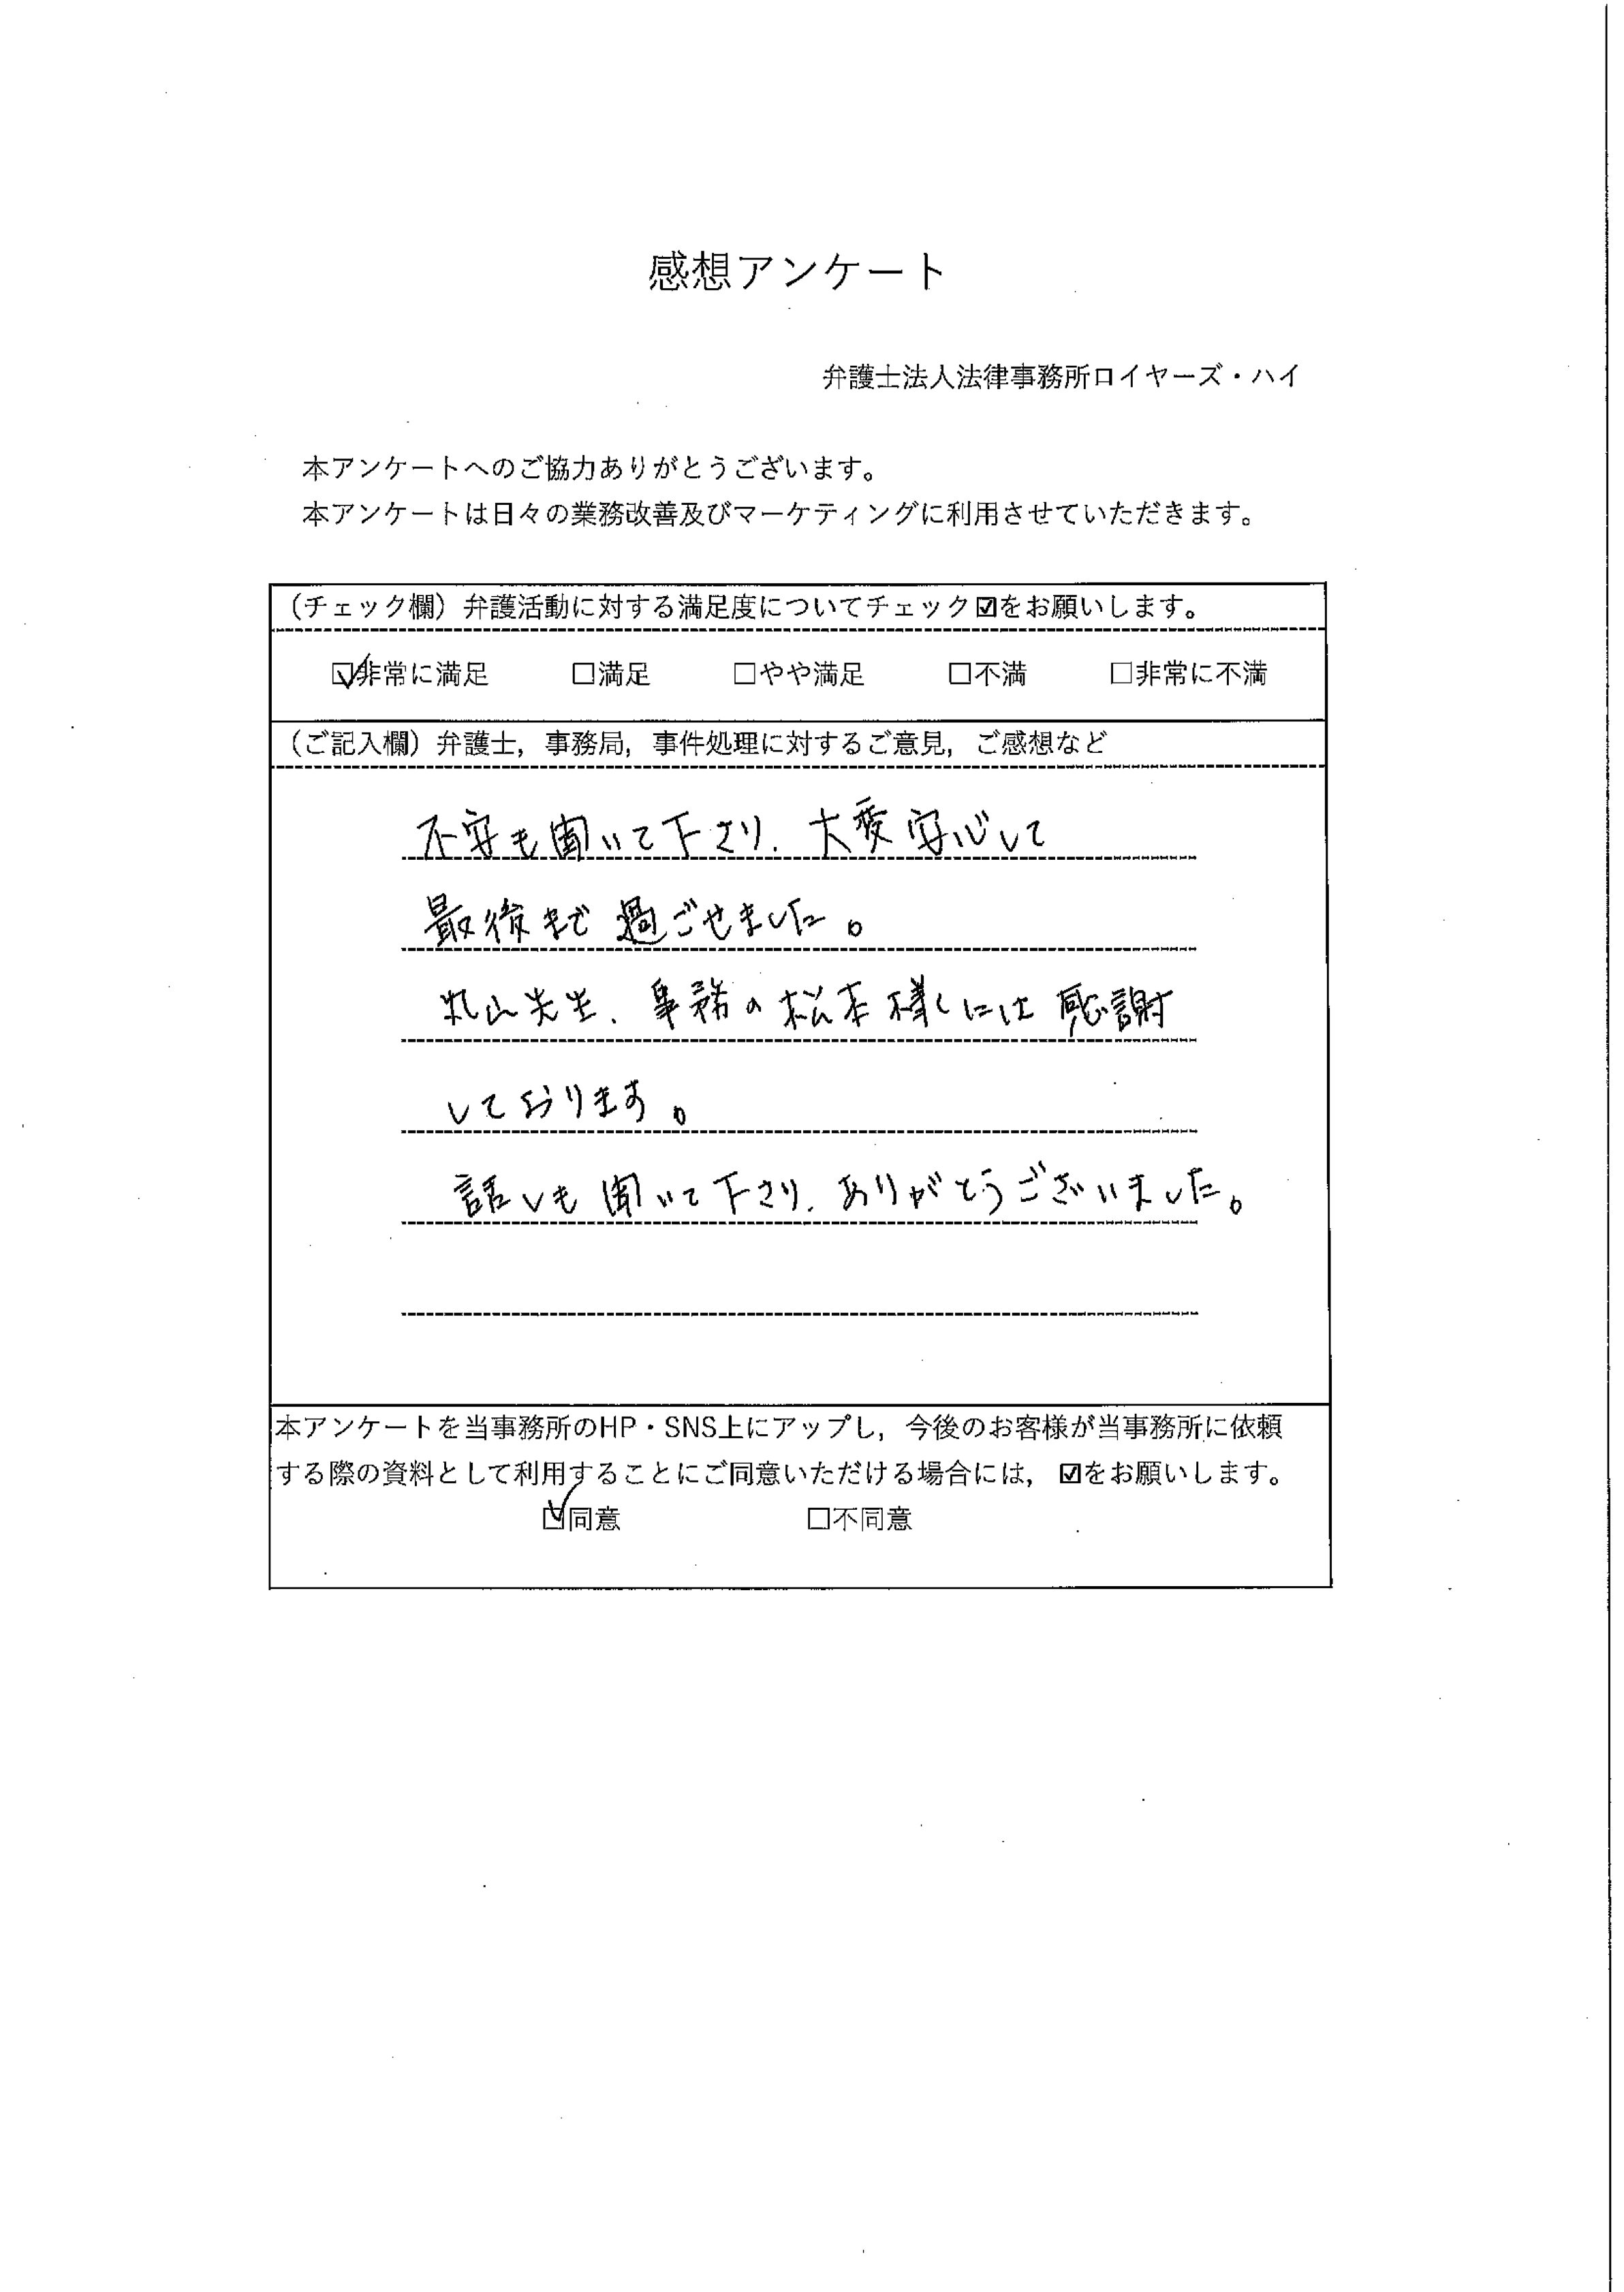 感想アンケート
弁護士法人法律事務所ロイヤーズ・ハイ
本アンケートへのご協力ありがとうございます。
本アンケートは日々の業務改善及びマーケティングに利用させていただきます。
（チェック欄）弁護活動に対する満足度についてチェック☑をお願いします。
☑非常に満足 □満足 □やや満足 □不満 □非常に不満
（ご記入欄）弁護士，事務局，事件処理に対するご意見，ご感想など
不安も聞いて下さり、大変安心して
最後まで過ごせました。
丸山先生、事務の松本様には感謝
しております。
話しも聞いて下さり、ありがとうございました。
本アンケートを当事務所のHP・SNS上にアップし，今後のお客様が当事務所に依頼
する際の資料として利用することにご同意いただける場合には，☑をお願いします。
☑同意 □不同意